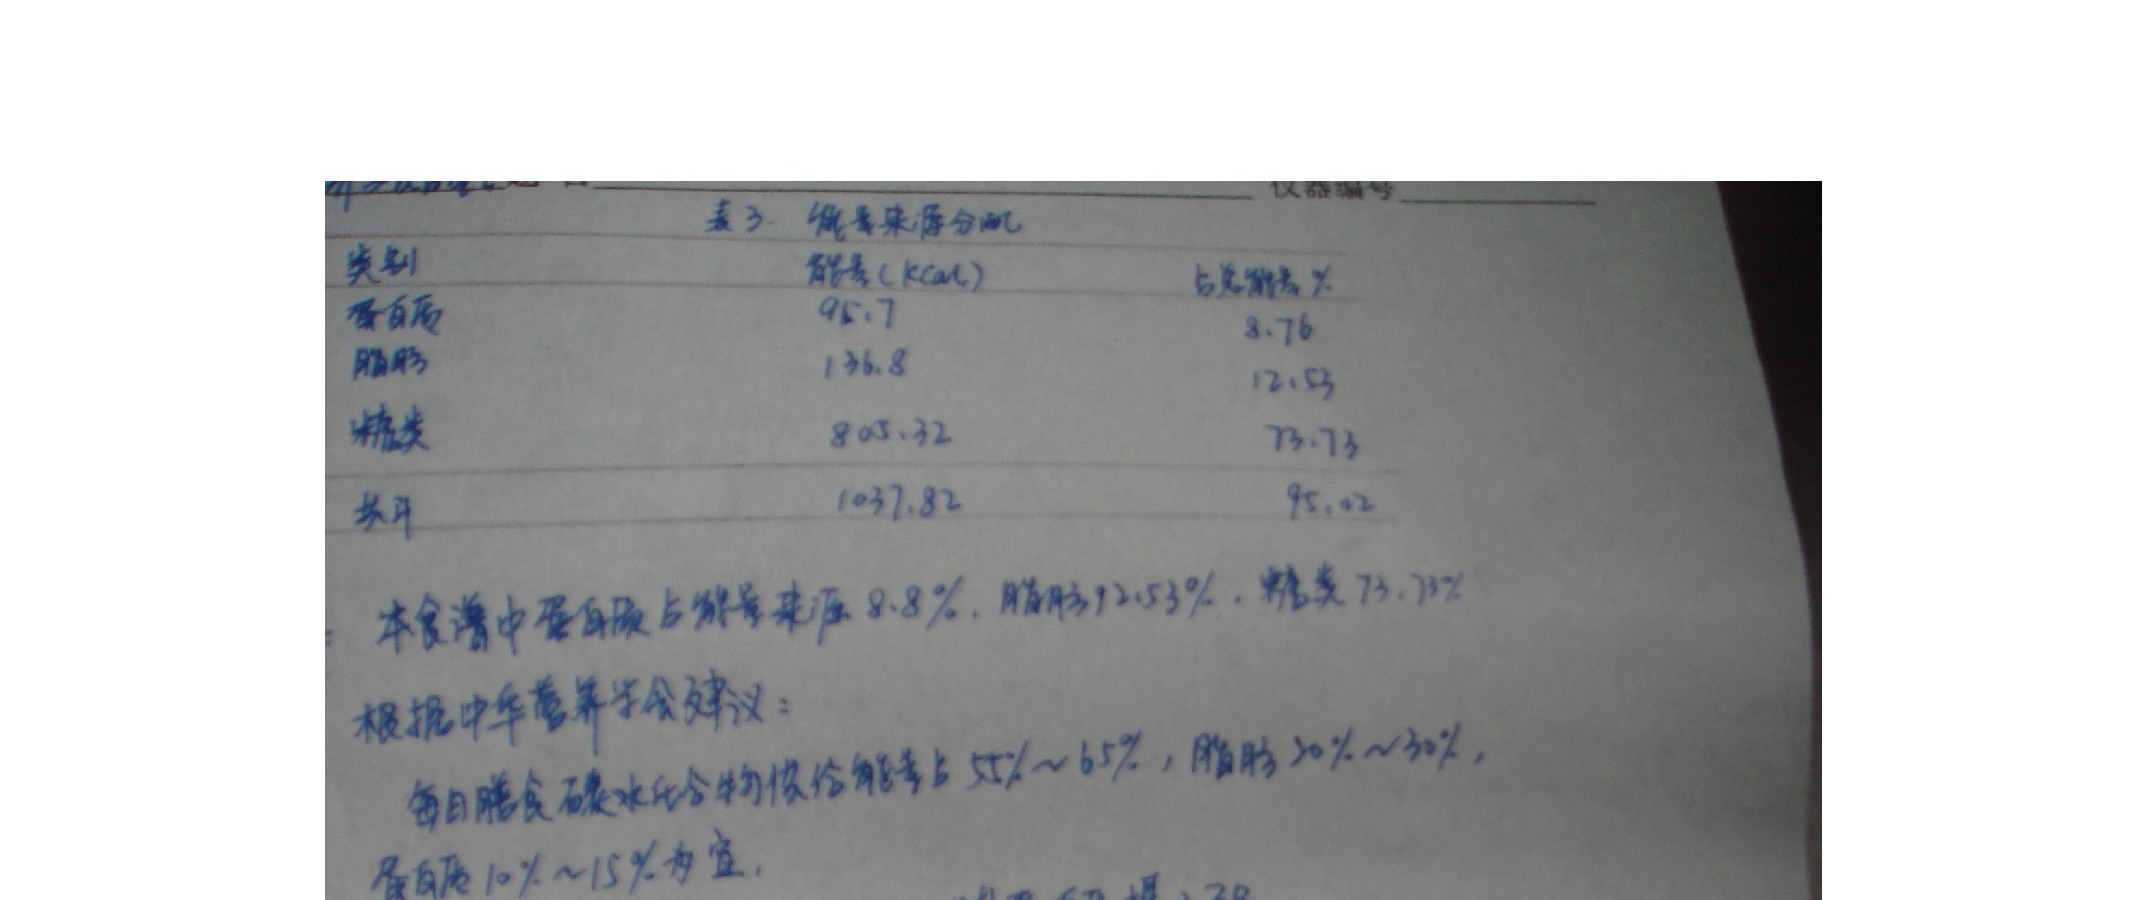 仪器编号
表3. 能量来源分配
类别 能量(Kcal) 占总能量%
蛋白质 95.7 8.76
脂肪 136.8 12.53
糖类 805.32 73.73
共计 1037.82 95.02
本食谱中蛋白质占能量来源8.8%、脂肪12.53%、糖类73.73%
根据中华营养学会建议:
每日膳食碳水化合物供给能量占55%~65%,脂肪20%~30%,
蛋白质10%~15%为宜.